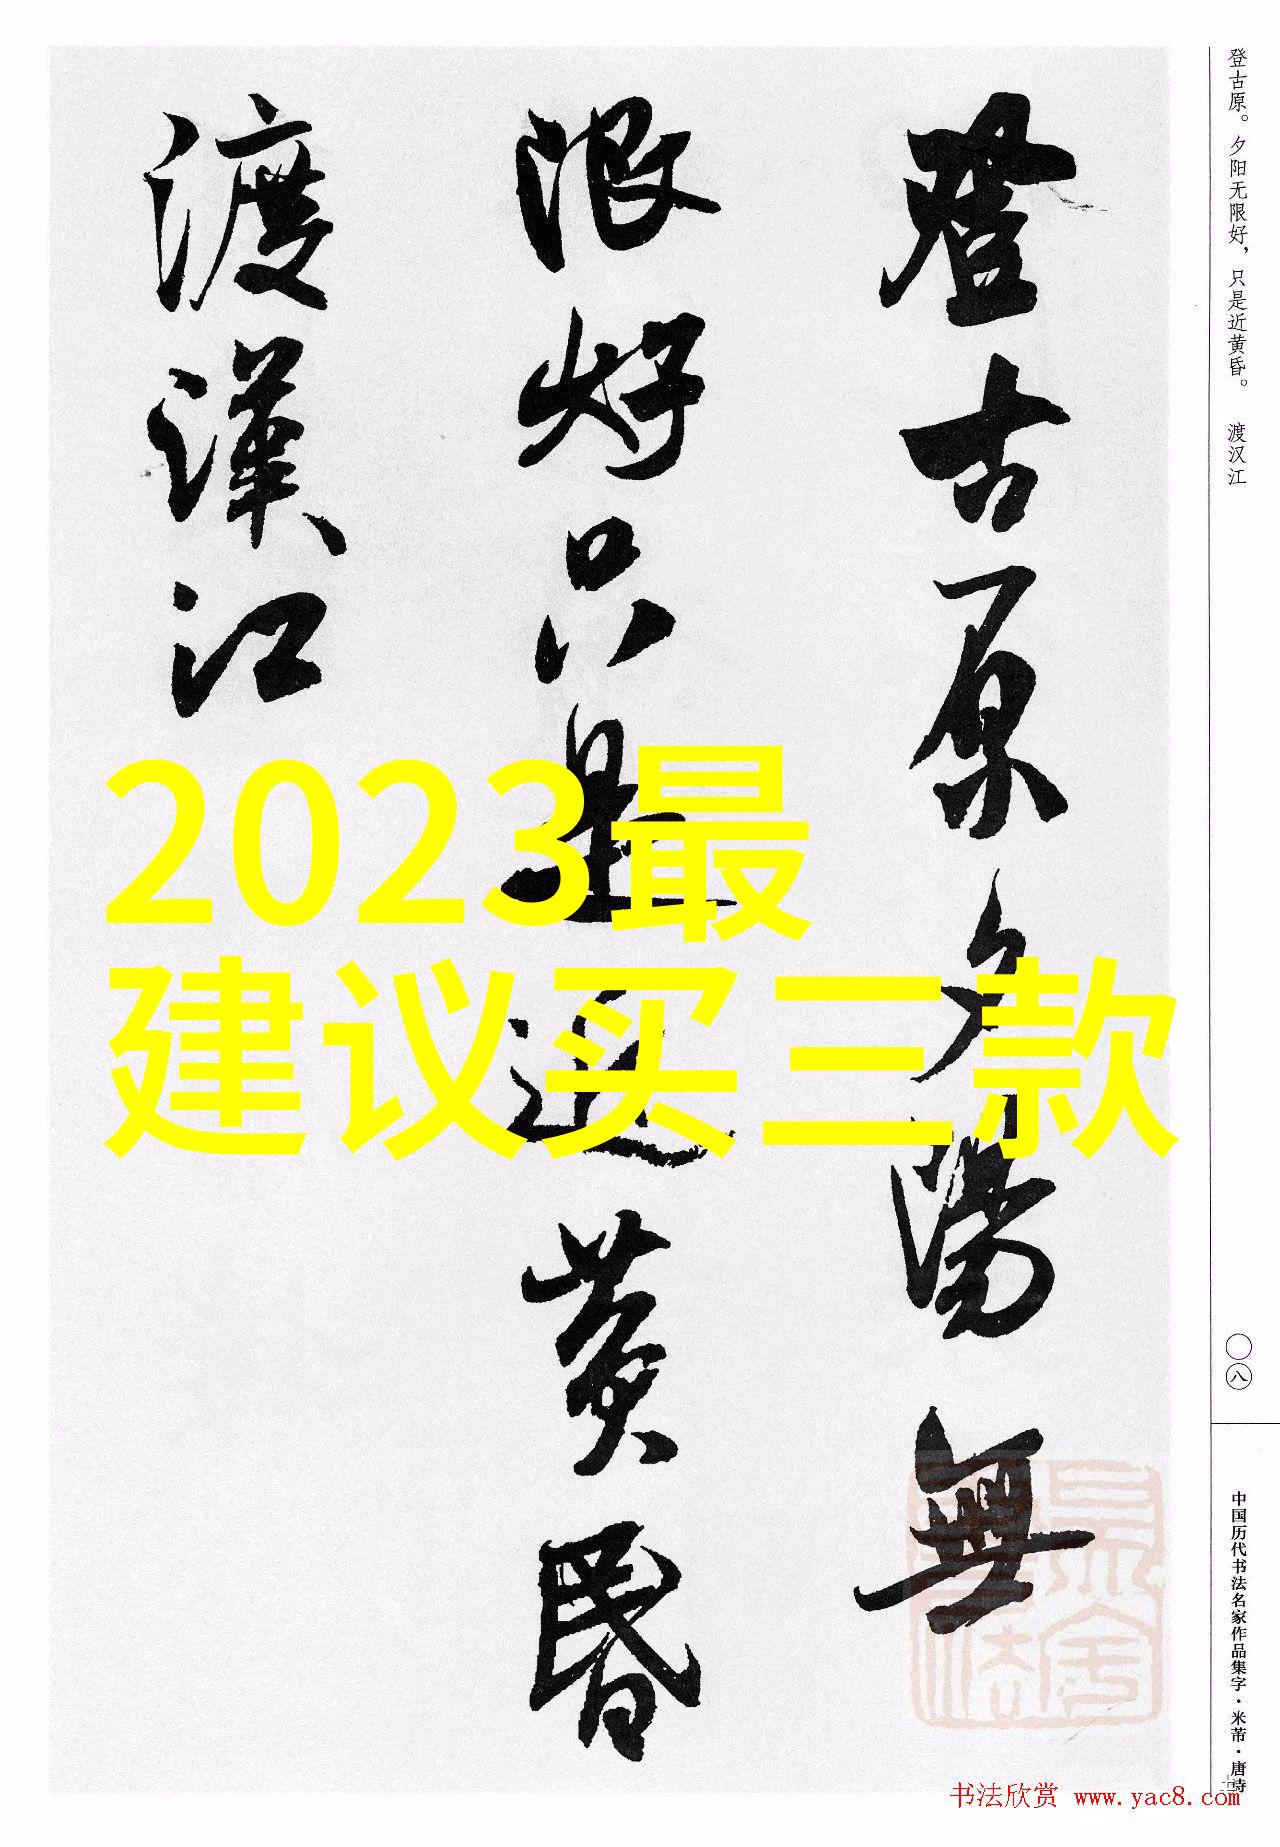 登古原夕陽無
限好只是近黄昏
渡漢江
2023最
建议买三款
登古原。夕阳无限好，只是近黄昏。 渡汉江
〇八
中国历代书法名家作品集字·米芾·唐诗
书法欣赏 www.yac8.com